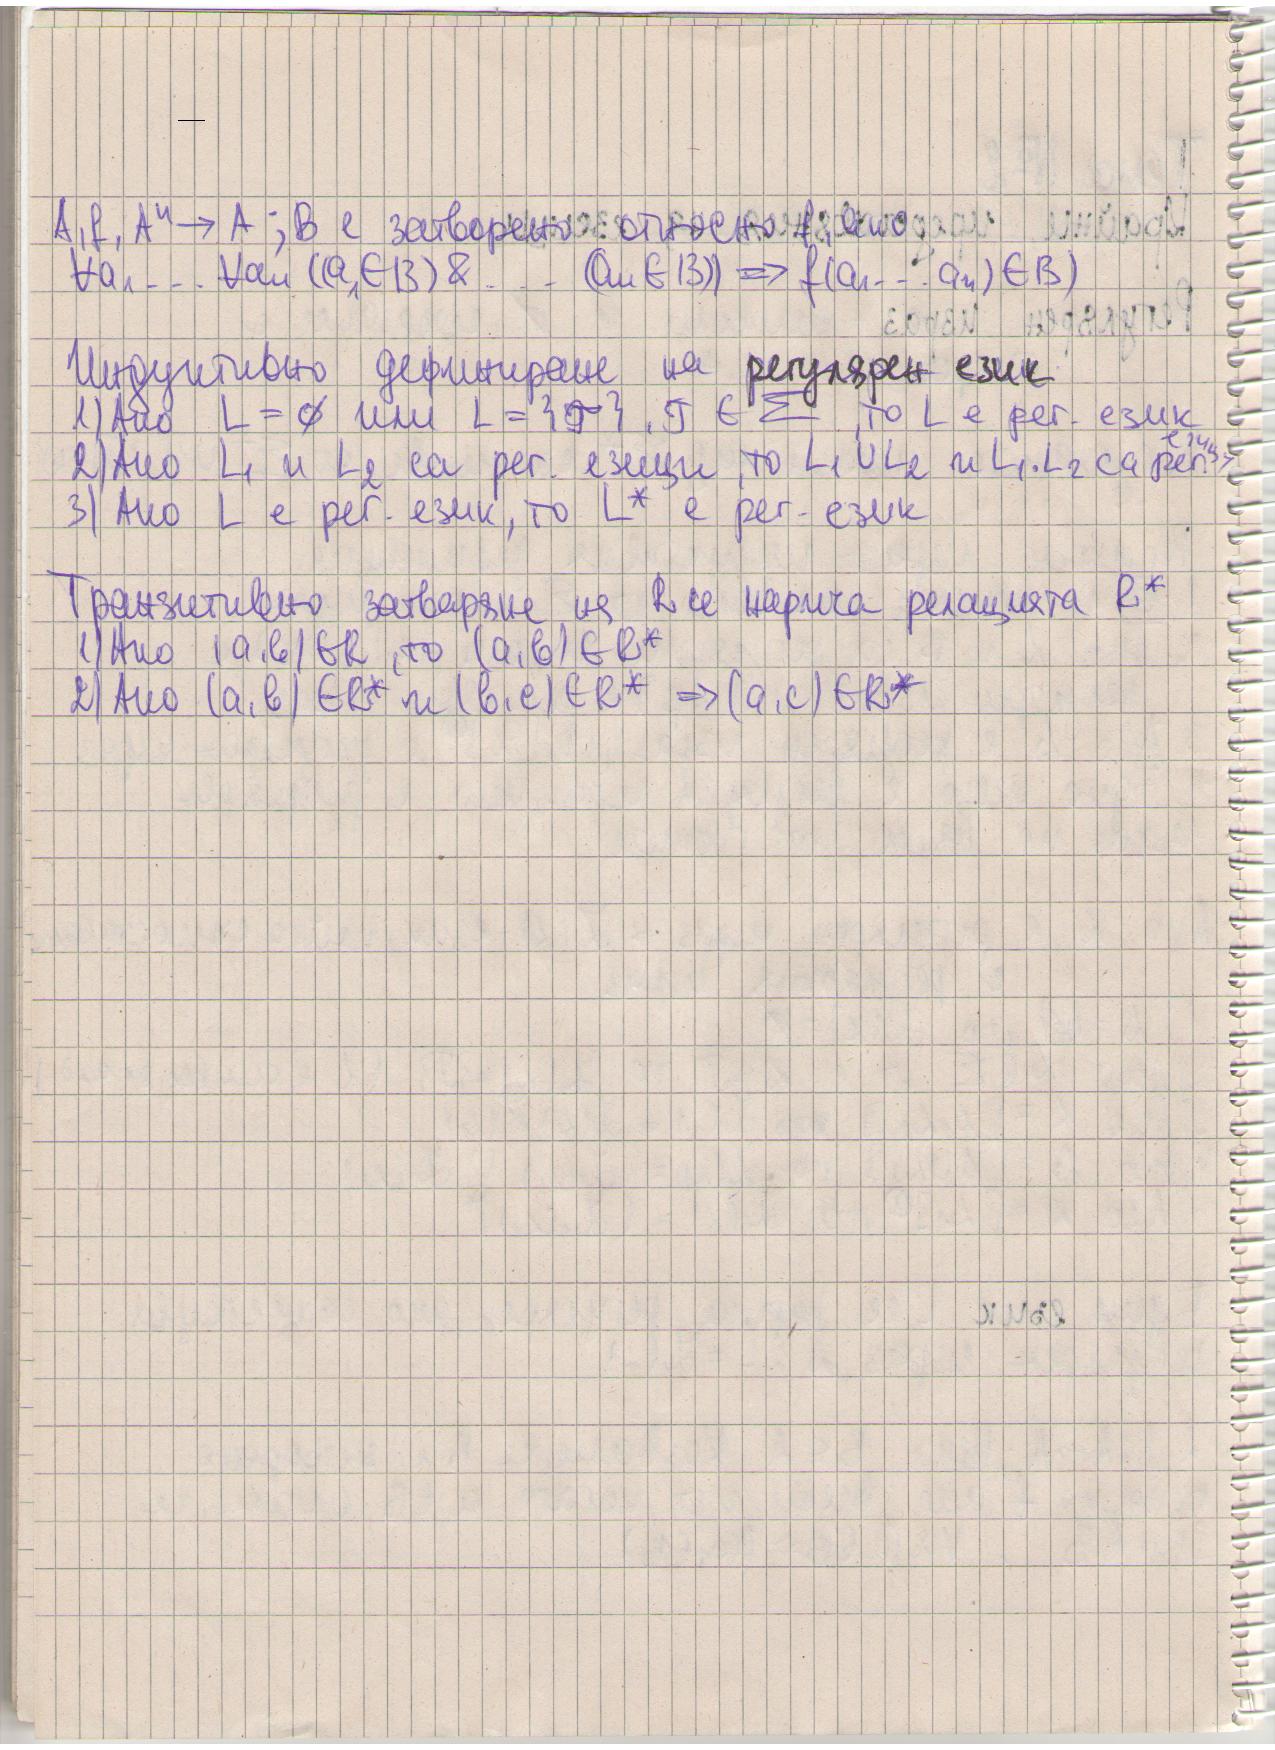 A, f, Aⁿ → A ; B е затворено относно f, ако
∀a₁ ... ∀aₙ ((a₁ ∈ B) & ... (aₙ ∈ B)) => f(a₁ ... aₙ) ∈ B)
Индуктивно дефиниране на регулярен език
1) Ако L = ∅ или L = {σ}, σ ∈ Σ, то L е рег. език
2) Ако L₁ и L₂ са рег. езици, то L₁ ∪ L₂ и L₁.L₂ са рег. езици
3) Ако L е рег. език, то L* е рег. език
Транзитивно затваряне на R се нарича релацията R*
1) Ако (a,b) ∈ R, то (a,b) ∈ R*
2) Ако (a,b) ∈ R* и (b,c) ∈ R* => (a,c) ∈ R*